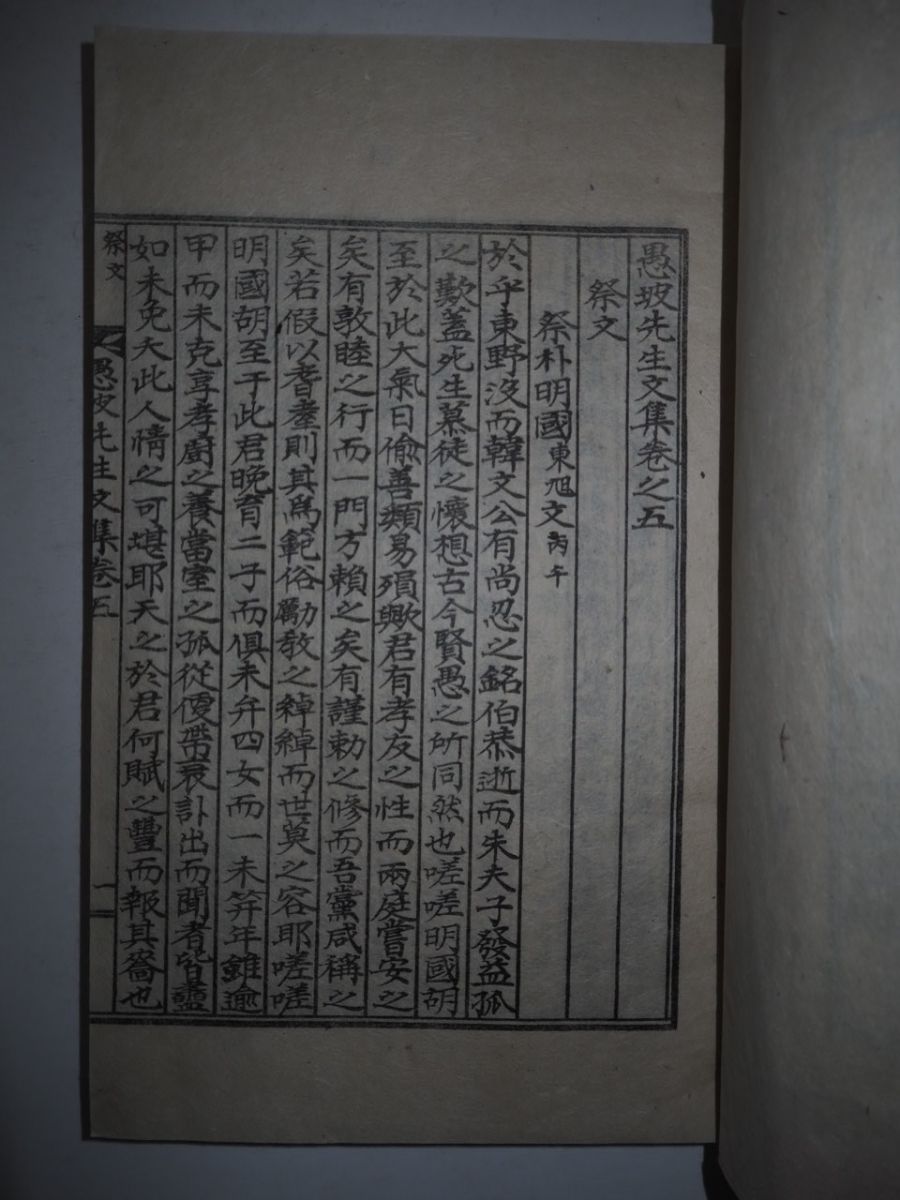 愚坡先生文集卷之五
祭文
祭朴明國東旭文丙午
於乎東野沒而韓文公有尚忍之銘伯恭逝而朱夫子發益孤
之歎蓋死生慕徒之懷想古今賢愚之所同然也嗟嗟明國胡
至於此大氣日偷善類易殞歟君有孝友之性而兩庭嘗安之
矣有敦睦之行而一門方賴之矣有謹勅之修而吾黨咸稱之
矣若假以耆耋則其爲範俗勵敎之綽綽而世莫之容耶嗟嗟
明國胡至于此君晩育二子而俱未弁四女而一未笄年雖逾
甲而未克享孝廚之養當室之孤從便帶衰訃出而聞者皆衋
如未免夫此人情之可堪耶天之於君何賦之豐而報其嗇也
祭文
愚坡先生文集卷五
一